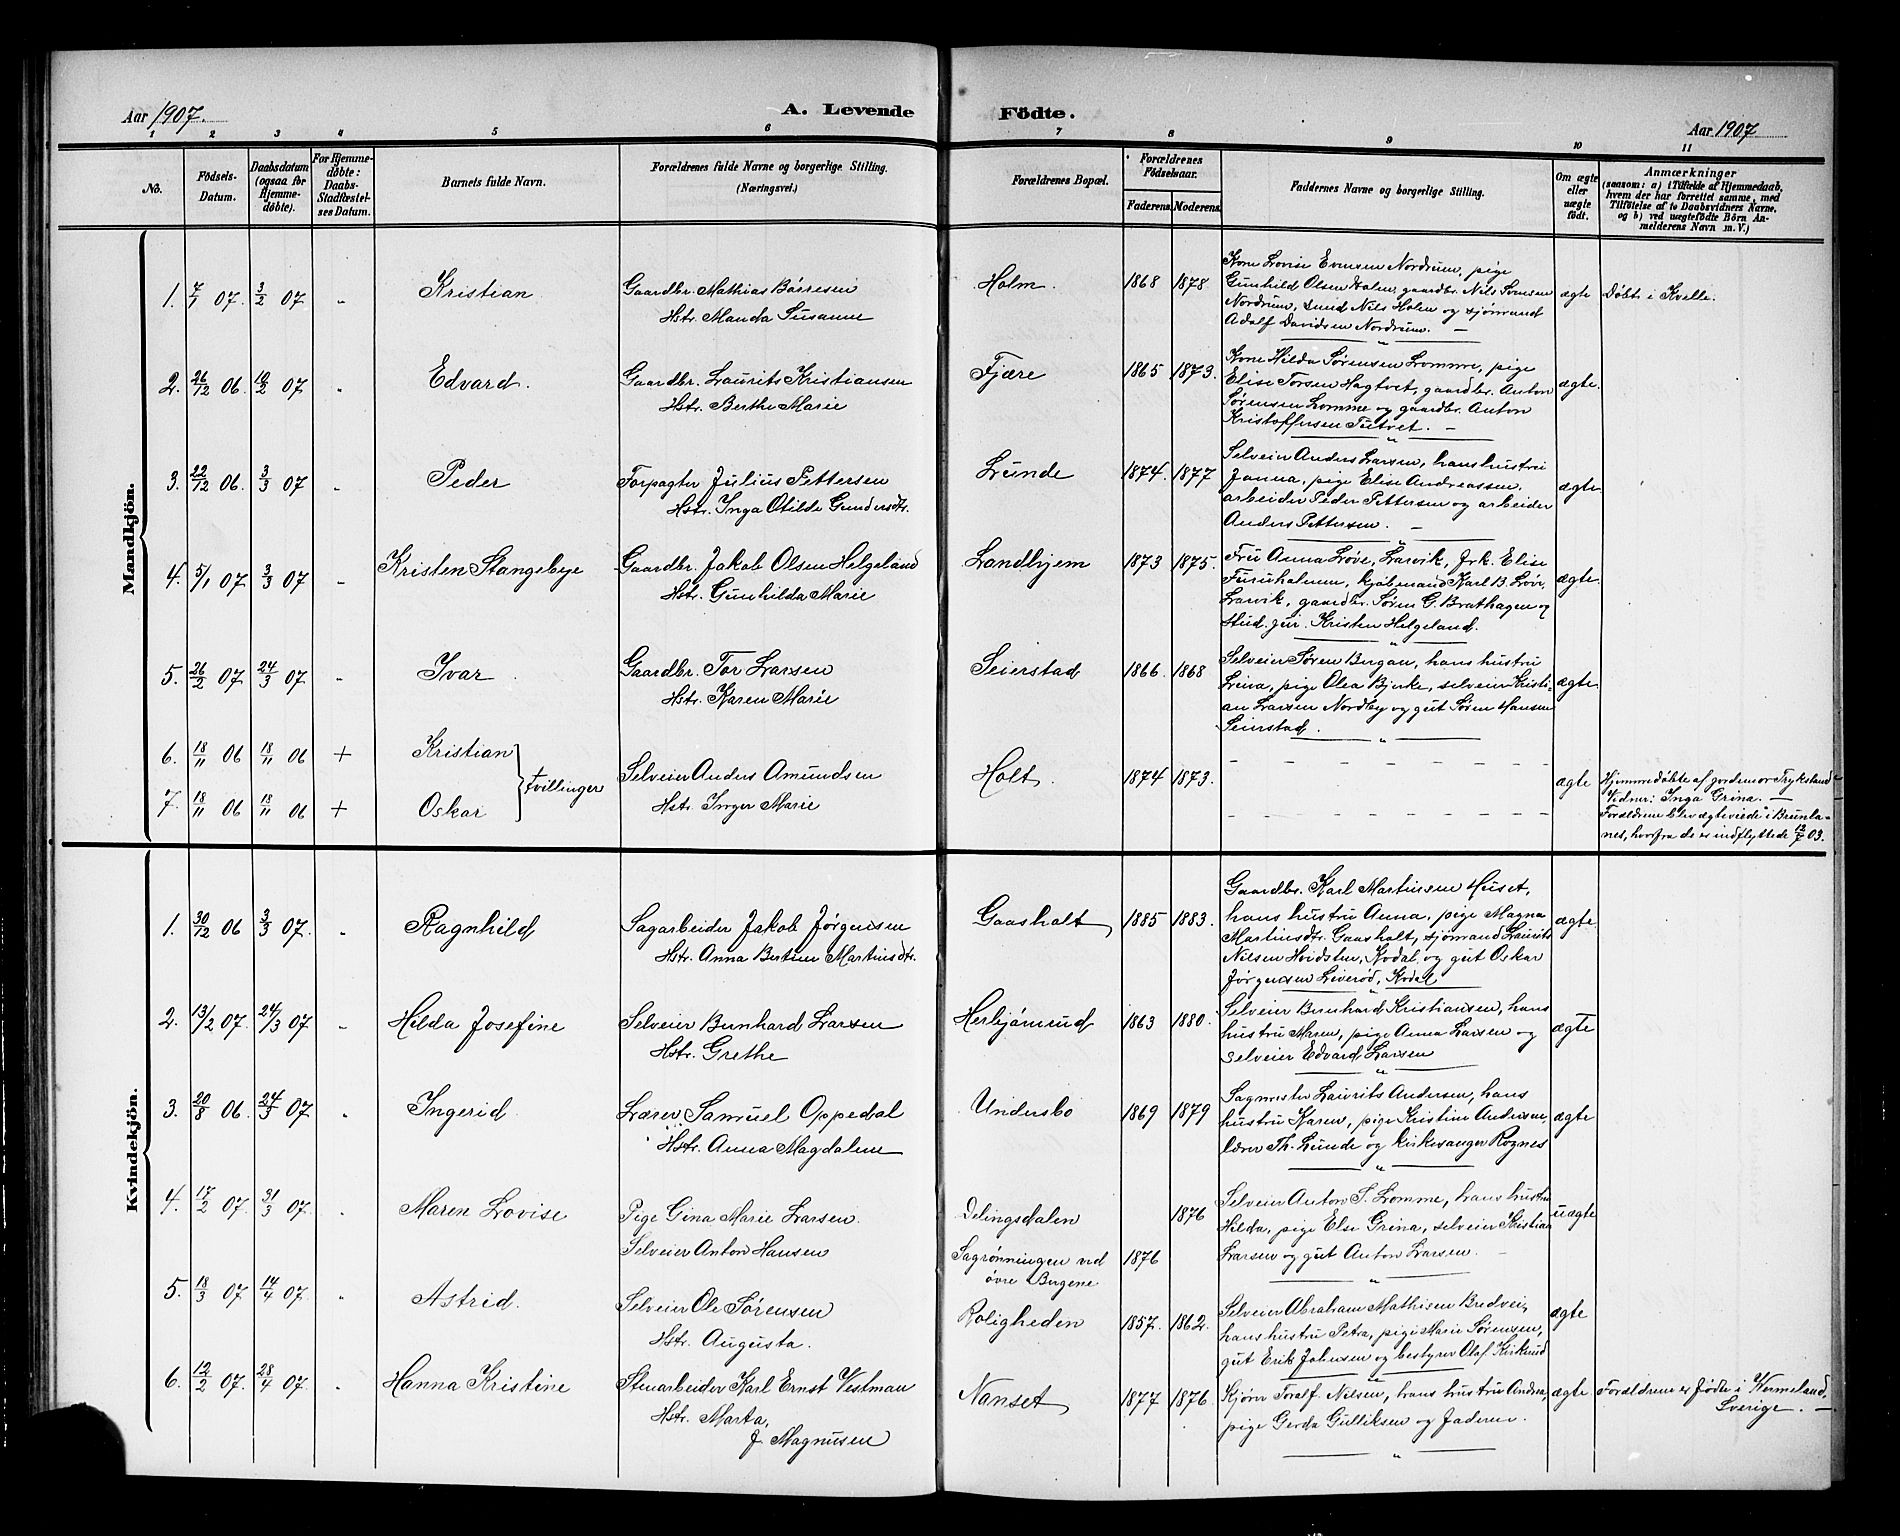 Aar 1907. A. Levende Födte. Aar 1907
1 2 3 4 5 6 7 8 9 10 11
No. Födsels-Datum. Daabsdatum (ogsaa for Hjemme-døbte). For Hjemme-døbte: Daabs-Stadfæstel-ses Datum. Barnets fulde Navn. Forældrenes fulde Navne og borgerlige Stilling. (Næringsvei.) Forældrenes Bopæl. Forældrenes Födselsaar. Faderens. Moderens. Faddernes Navne og borgerlige Stilling. Om ægte eller uægte födt. Anmærkninger (saasom: a) i Tilfælde af Hjemmedaab, hvem der har forrettet samme, med Tilföielse af to Daabsvidners Navne, og b) ved uægtefödte Börn An-melderens Navn m. V.)
Mandkjön.
1. 7/1 07. 3/2 07 " Kristian. Gaardbr. Mathias Børresen
Hstr. Manda Susanne
Holm. 1868 1878
Kone Lovise Evensen Nordrum, pige
Gunhild Olsen Holm, gaardbr. Nils Svensen
Nordrum, smed Nils Holm og sjømand
Adolf Davidsen Nordrum. —
ægte Døbt i Kvelle.
2. 26/12 06. 10/2 07 " Edvard. Gaardbr. Laurits Kristiansen
Hstr. Berthe Marie
Fjære 1865 1873.
Kone Hilda Sørensen Lomme, pige
Elise Torsen Hagtvet, gaardbr. Anton
Sørensen Lomme og gaardbr. Anton
Kristoffersen Tutvet. —
ægte.
3. 22/12 06. 3/3 07 " Peder Forpagter Julius Pettersen
Hstr. Inga Otilde Gundersdtr.
Lunde 1874. 1877
Selveier Anders Larsen, hans hustru
Janna, pige Elise Andreassen.
arbeider Peder Pettersen og arbeider
Anders Pettersen. —
ægte.
4. 5/1 07. 3/3 07 " Kristen Stangebye Gaardbr. Jakob Olsen Helgeland
Hstr. Gunhilda Marie
Landhjem 1873 1875.
Fru Anna Løve, Larvik, Frk. Elise
Furuholmen, kjøbmand Karl B. Løve,
Larvik, gaardbr. Søren G. Brathagen og
stud. jur. Kristen Helgeland.
ægte.
5. 26/2 07 24/3 07 " Ivar Gaardbr. Tor Larsen
Hstr. Karen Marie
Seierstad 1866. 1868
Selveier Søren Bergan, hans hustru
Lena, pige Olea Bjerke, selveier Kristi-
an Larsen Nordby og gut Søren Hansen
Seierstad.
ægte.
6. 18/11 06 18/11 06 + Kristian
7. 18/11 06 18/11 06 + Oskar
tvillinger
Selveier Anders Amundsen
Hstr. Inger Marie
Holt. 1874 1873.
ægte
Hjemmedøbte af jordemor Trykeland
Vidner: Inga Grina. —
Forældrene blev ægteviede i Brunla-
nes, hvorfra de er indflyttede 12/7 03.
Kvindekjön.
1. 30/12 06 3/3 07. " Ragnhild Sagarbeider Jakob Jørgensen
Hstr. Anna Bertine Martinsdtr.
Gaasholt 1885 1883.
Gaardbr. Karl Martinsen Huset,
hans hustru Anna, pige Magna
Martinsdtr. Gaasholt, sjømand Laurits
Nilsen Hvidsten, Kodal og gut Oskar
Jørgensen Liverød, Kodal
ægte.
2. 13/2 07. 24/3 07. " Hilda Josefine Selveier Bernhard Larsen
Hstr. Grethe
Herbjømrud 1863 1880.
Selveier Bernhard Kristiansen, hans
hustru Maren, pige Anna Larsen og
selveier Edvard Larsen
ægte
3. 20/8 06. 24/3 07. " Ingerid Lærer Samuel Oppedal
Hstr. Anna Magdalene
Undersbo 1869 1879
Sagmester Laurits Andersen, hans
hustru Karen, pige Kristine Andersen,
lærer Th. Lunde og kirkesanger Rognes
ægte
4. 17/2 07. 31/3 07. " Maren Lovise Pige Gina Marie Larsen.
Selveier Anton Hansen
Delingsdalen 1876
Sagrønningen ved 1876
øvre Bergene
Selveier Anton S. Lomme, hans hustru
Hilda, pige Else Grina, selveier Kristian
Larsen og gut Anton Larsen. —
uægte
5. 18/3 07 14/4 07. " Astrid. Selveier Ole Sørensen
Hstr. Augusta.
Roligheden 1857. 1862.
Selveier Abraham Mathisen Bredvei,
hans hustru Petra, pige Marie Sørensen,
gut Erik Johnsen og bestyrer Olaf Kirkerud
ægte
6. 12/2 07. 28/4 07. " Hanna Kristine Stenarbeider Karl Ernst Vestman
Hstr. Marta,
f. Magnusen
Nanset 1877 1876.
Skjønr Toralf Nilsen, hans hustru Andrea,
pige Gerda Gulliksen og faderen.
ægte Forældrene er fødte i Wermeland,
Sverige. —